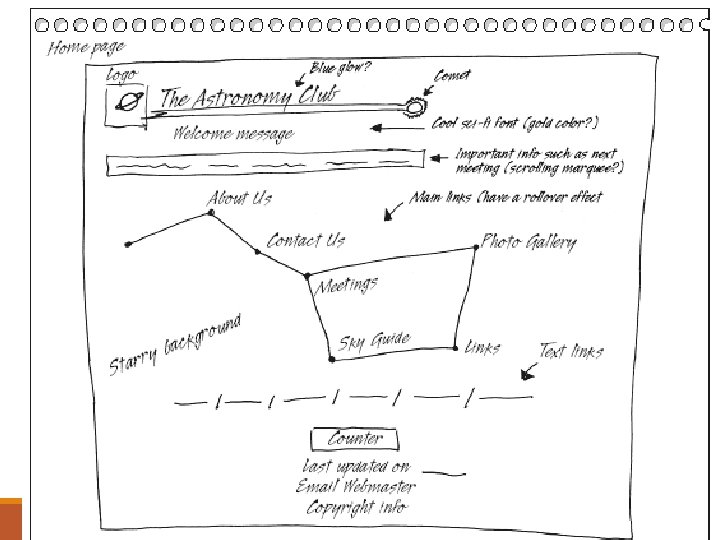 Home page
Logo
Blue glow?
Comet
The Astronomy Club
Welcome message
Cool sci-fi font (gold color?)
Important info such as next
meeting (scrolling marquee?)
About Us
Main links (have a rollover effect
Contact Us
Photo Gallery
Meetings
Starry background
Sky Guide
Links
Text links
Counter
Last updated on
Email Webmaster
Copyright info